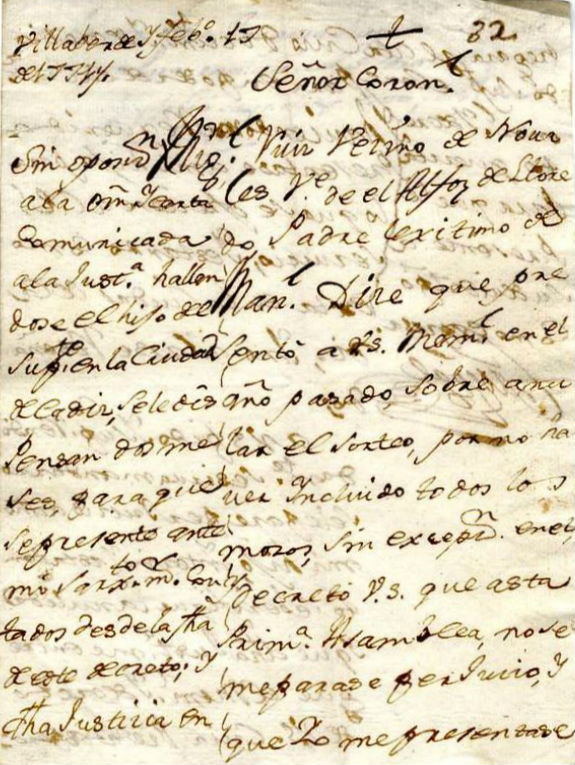 Villaverde y feb.º 17
de 1774.
32
Señor Coron.l
Sin oposiz.n
a la orn. y carta
comunicada
a la Just.a hallan
dose el hijo de el
sup.te en la Ciudad
de Cadiz, se le dis
pensan dos me
ses, para que
se presente ante
mi Con
tados desde la fha
de este decreto; y
dha Justicia en
Vizir Vezino de Nova
les V.e de el Alfoz de Llore
do Padre lexitimo de
Man.l Dize que, pre
sentò a V.s. Mem.l en el
año pasado, sobre anu
lar el sorteo, por no ha
ver Yncluido todos los
mozos, sin exsepz.n en el,
Decretó V.s. que asta
Prim.a Asamblea, no se
me parase perJuicio, y
que Yo me presentase